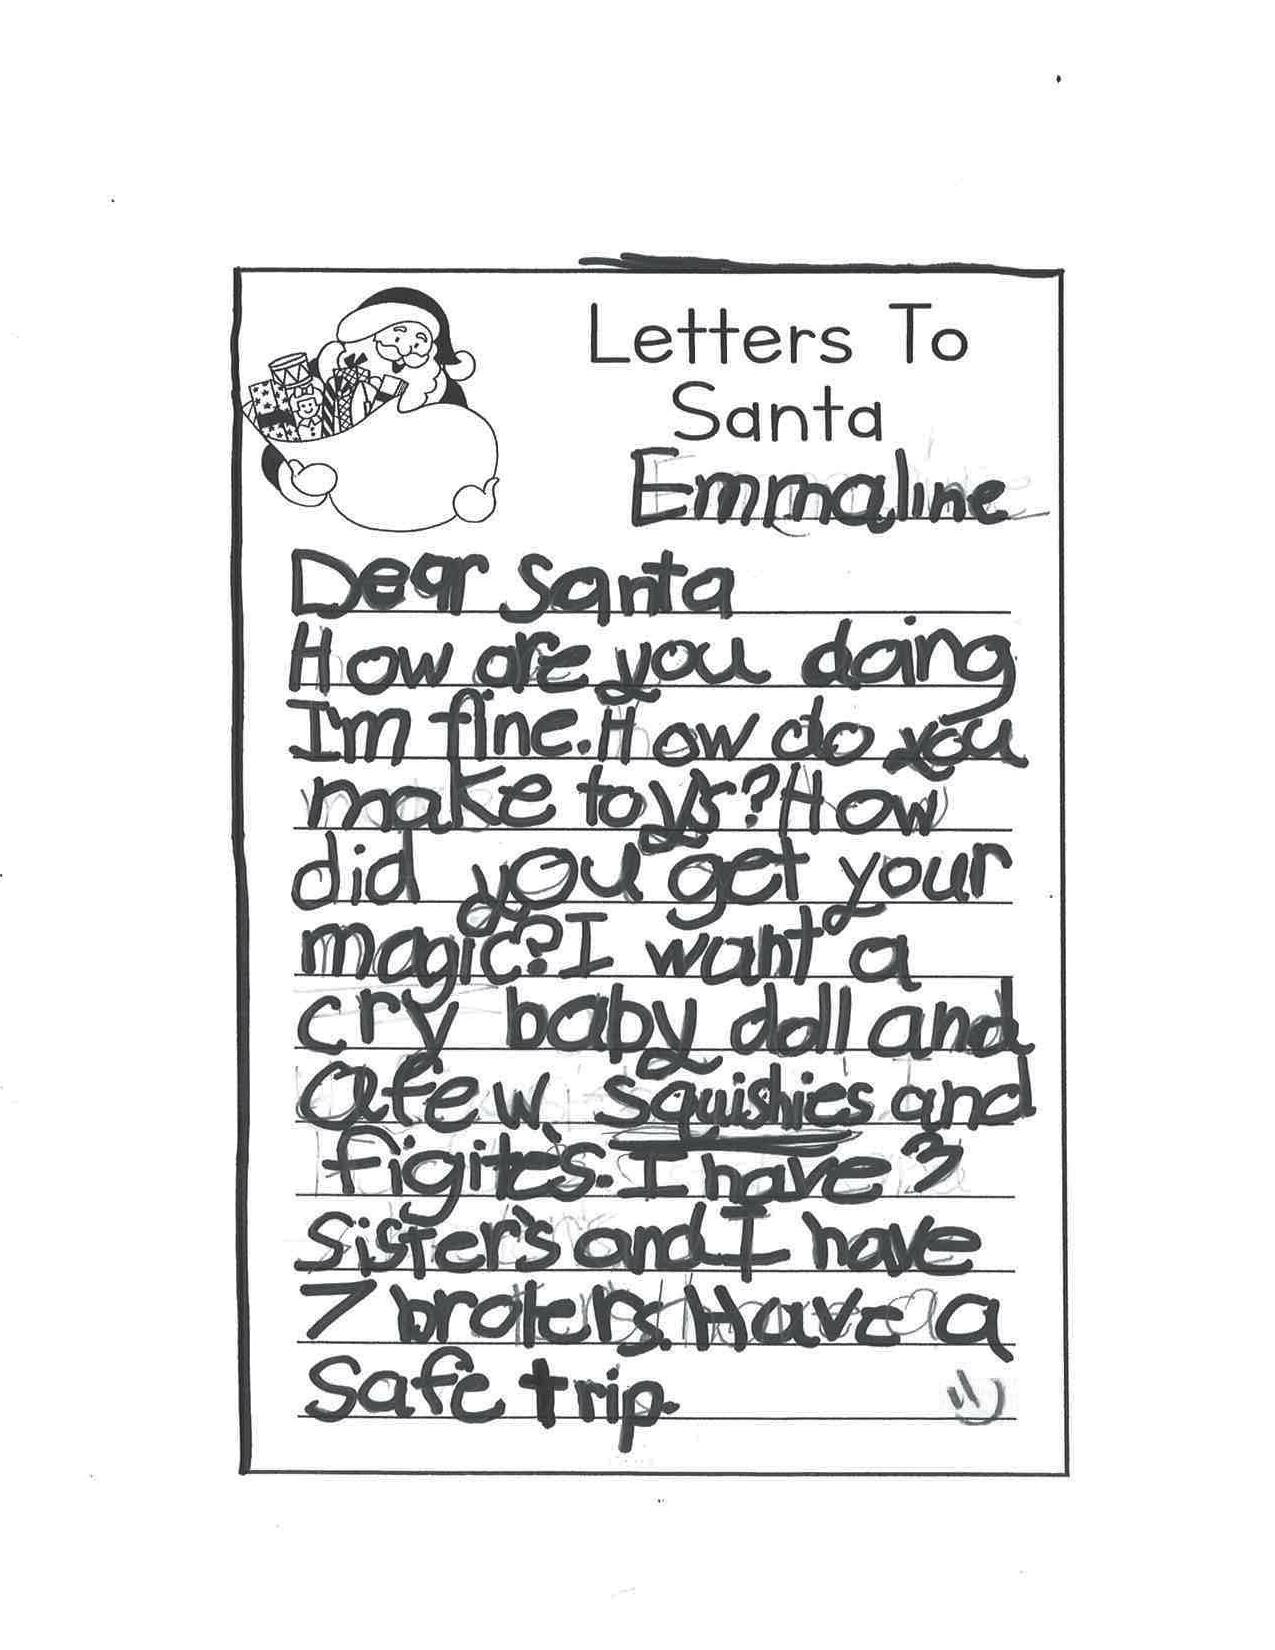 Letters To
Santa
Emmaline
Dear Santa
How are you doing
I'm fine. How do you
make toys? How
did you get your
magic? I want a
cry baby doll and
a few squishies and
figite's. I have 3
Sister's and I have
7 broters. Have a
Safe trip.